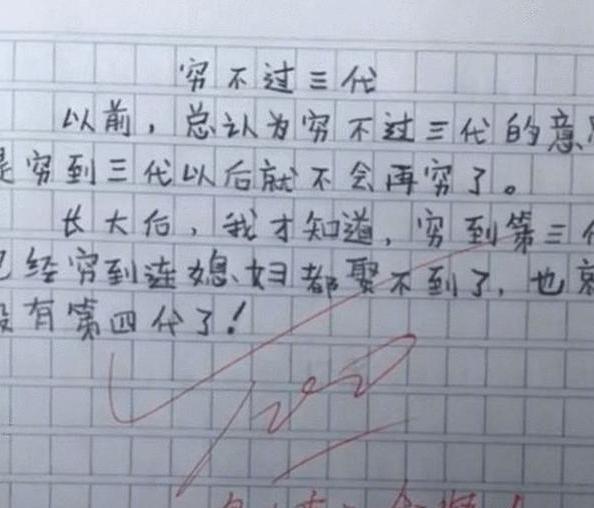 穷不过三代
以前，总认为穷不过三代的意
是穷到三代以后就不会再穷了。
长大后，我才知道，穷到第三
已经穷到连媳妇都娶不到了，也就
没有第四代了！
100